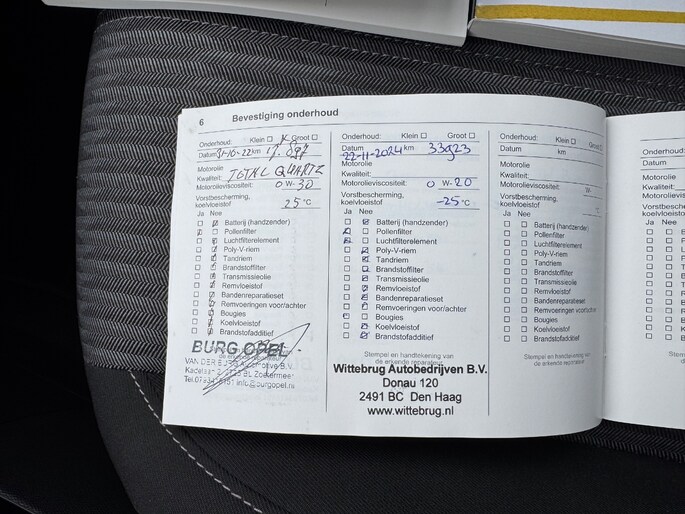 6 Bevestiging onderhoud
Onderhoud: Klein Groot
Datum 31-10-22 km
Motorolie
Kwaliteit: TOTAL QUARTZ
Motorolieviscositeit: 0 W- 30
Vorstbescherming,
koelvloeistof 25 °C
Ja Nee
Batterij (handzender)
Pollenfilter
Luchtfilterelement
Poly-V-riem
Tandriem
Brandstoffilter
Transmissieolie
Remvloeistof
Bandenreparatieset
Remvoeringen voor/achter
Bougies
Koelvloeistof
Brandstofadditief
BURG OPEL
Onderhoud: Klein Groot
Datum 22-11-2024 km 33923
Motorolie
Kwaliteit:
Motorolieviscositeit: 0 W- 20
Vorstbescherming,
koelvloeistof -25 °C
Ja Nee
Batterij (handzender)
Pollenfilter
Luchtfilterelement
Poly-V-riem
Tandriem
Brandstoffilter
Transmissieolie
Remvloeistof
Bandenreparatieset
Remvoeringen voor/achter
Bougies
Koelvloeistof
Brandstofadditief
Stempel en handtekening van
de erkende reparateur
Wittebrug Autobedrijven B.V.
Donau 120
2491 BC Den Haag
www.wittebrug.nl
Onderhoud: Klein Groot
Datum km
Motorolie
Kwaliteit:
Motorolieviscositeit: W-
Vorstbescherming,
koelvloeistof
Ja Nee
Batterij (handzender)
Pollenfilter
Luchtfilterelement
Poly-V-riem
Tandriem
Brandstoffilter
Transmissieolie
Remvloeistof
Bandenreparatieset
Remvoeringen voor/achter
Bougies
Koelvloeistof
Brandstofadditief
Stempel en handtekening van
de erkende reparateur
Onderhoud:
Datum
Motorolie
Kwaliteit:
Motorolieviscositeit
Vorstbescherming,
koelvloeistof
Ja Nee